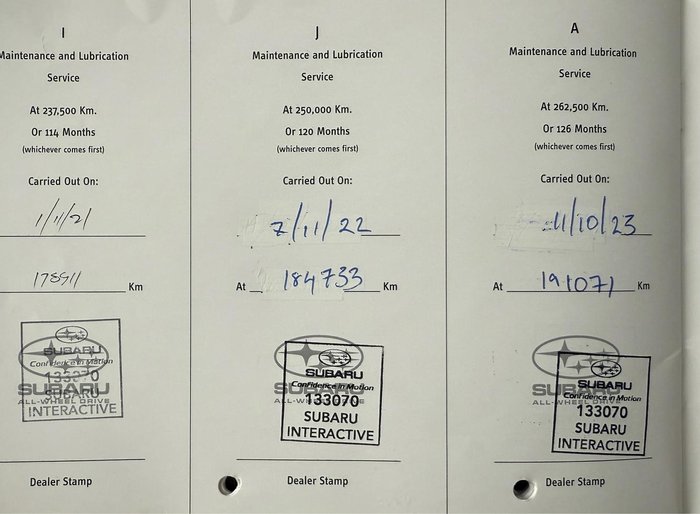 I
Maintenance and Lubrication
Service
At 237,500 Km.
Or 114 Months
(whichever comes first)
Carried Out On:
1/11/21
178911 Km
SUBARU
Confidence in Motion
SUBARU
ALL-WHEEL DRIVE
SUBARU
INTERACTIVE
Dealer Stamp
J
Maintenance and Lubrication
Service
At 250,000 Km.
Or 120 Months
(whichever comes first)
Carried Out On:
7/11/22
At 184733 Km
SUBARU
Confidence in Motion
SUBARU
133070
ALL-WHEEL DRIVE
SUBARU
INTERACTIVE
Dealer Stamp
A
Maintenance and Lubrication
Service
At 262,500 Km.
Or 126 Months
(whichever comes first)
Carried Out On:
11/10/23
At 191071 Km
SUBARU
Confidence in Motion
SUBARU
ALL-WHEEL DRIVE
133070
SUBARU
INTERACTIVE
Dealer Stamp